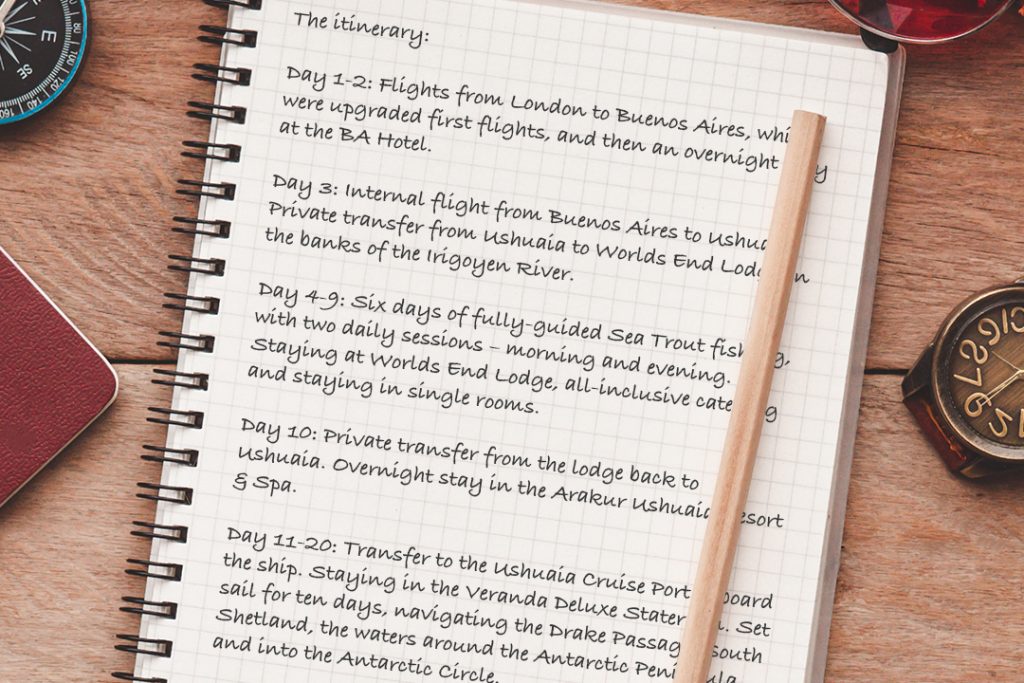 The itinerary:
Day 1-2: Flights from London to Buenos Aires, whi
were upgraded first flights, and then an overnight
at the BA Hotel.
Day 3: Internal flight from Buenos Aires to Ushua
Private transfer from Ushuaia to Worlds End Lod
the banks of the Irigoyen River.
Day 4-9: Six days of fully-guided Sea Trout fish g,
with two daily sessions – morning and evening.
Staying at Worlds End Lodge, all-inclusive cate g
and staying in single rooms.
Day 10: Private transfer from the lodge back to
Ushuaia. Overnight stay in the Arakur Ushuaia Resort
& Spa.
Day 11-20: Transfer to the Ushuaia Cruise Port board
the ship. Staying in the Veranda Deluxe State . Set
sail for ten days, navigating the Drake Passag South
Shetland, the waters around the Antarctic Peninsula
and into the Antarctic Circle.
E
SE
120
140
160